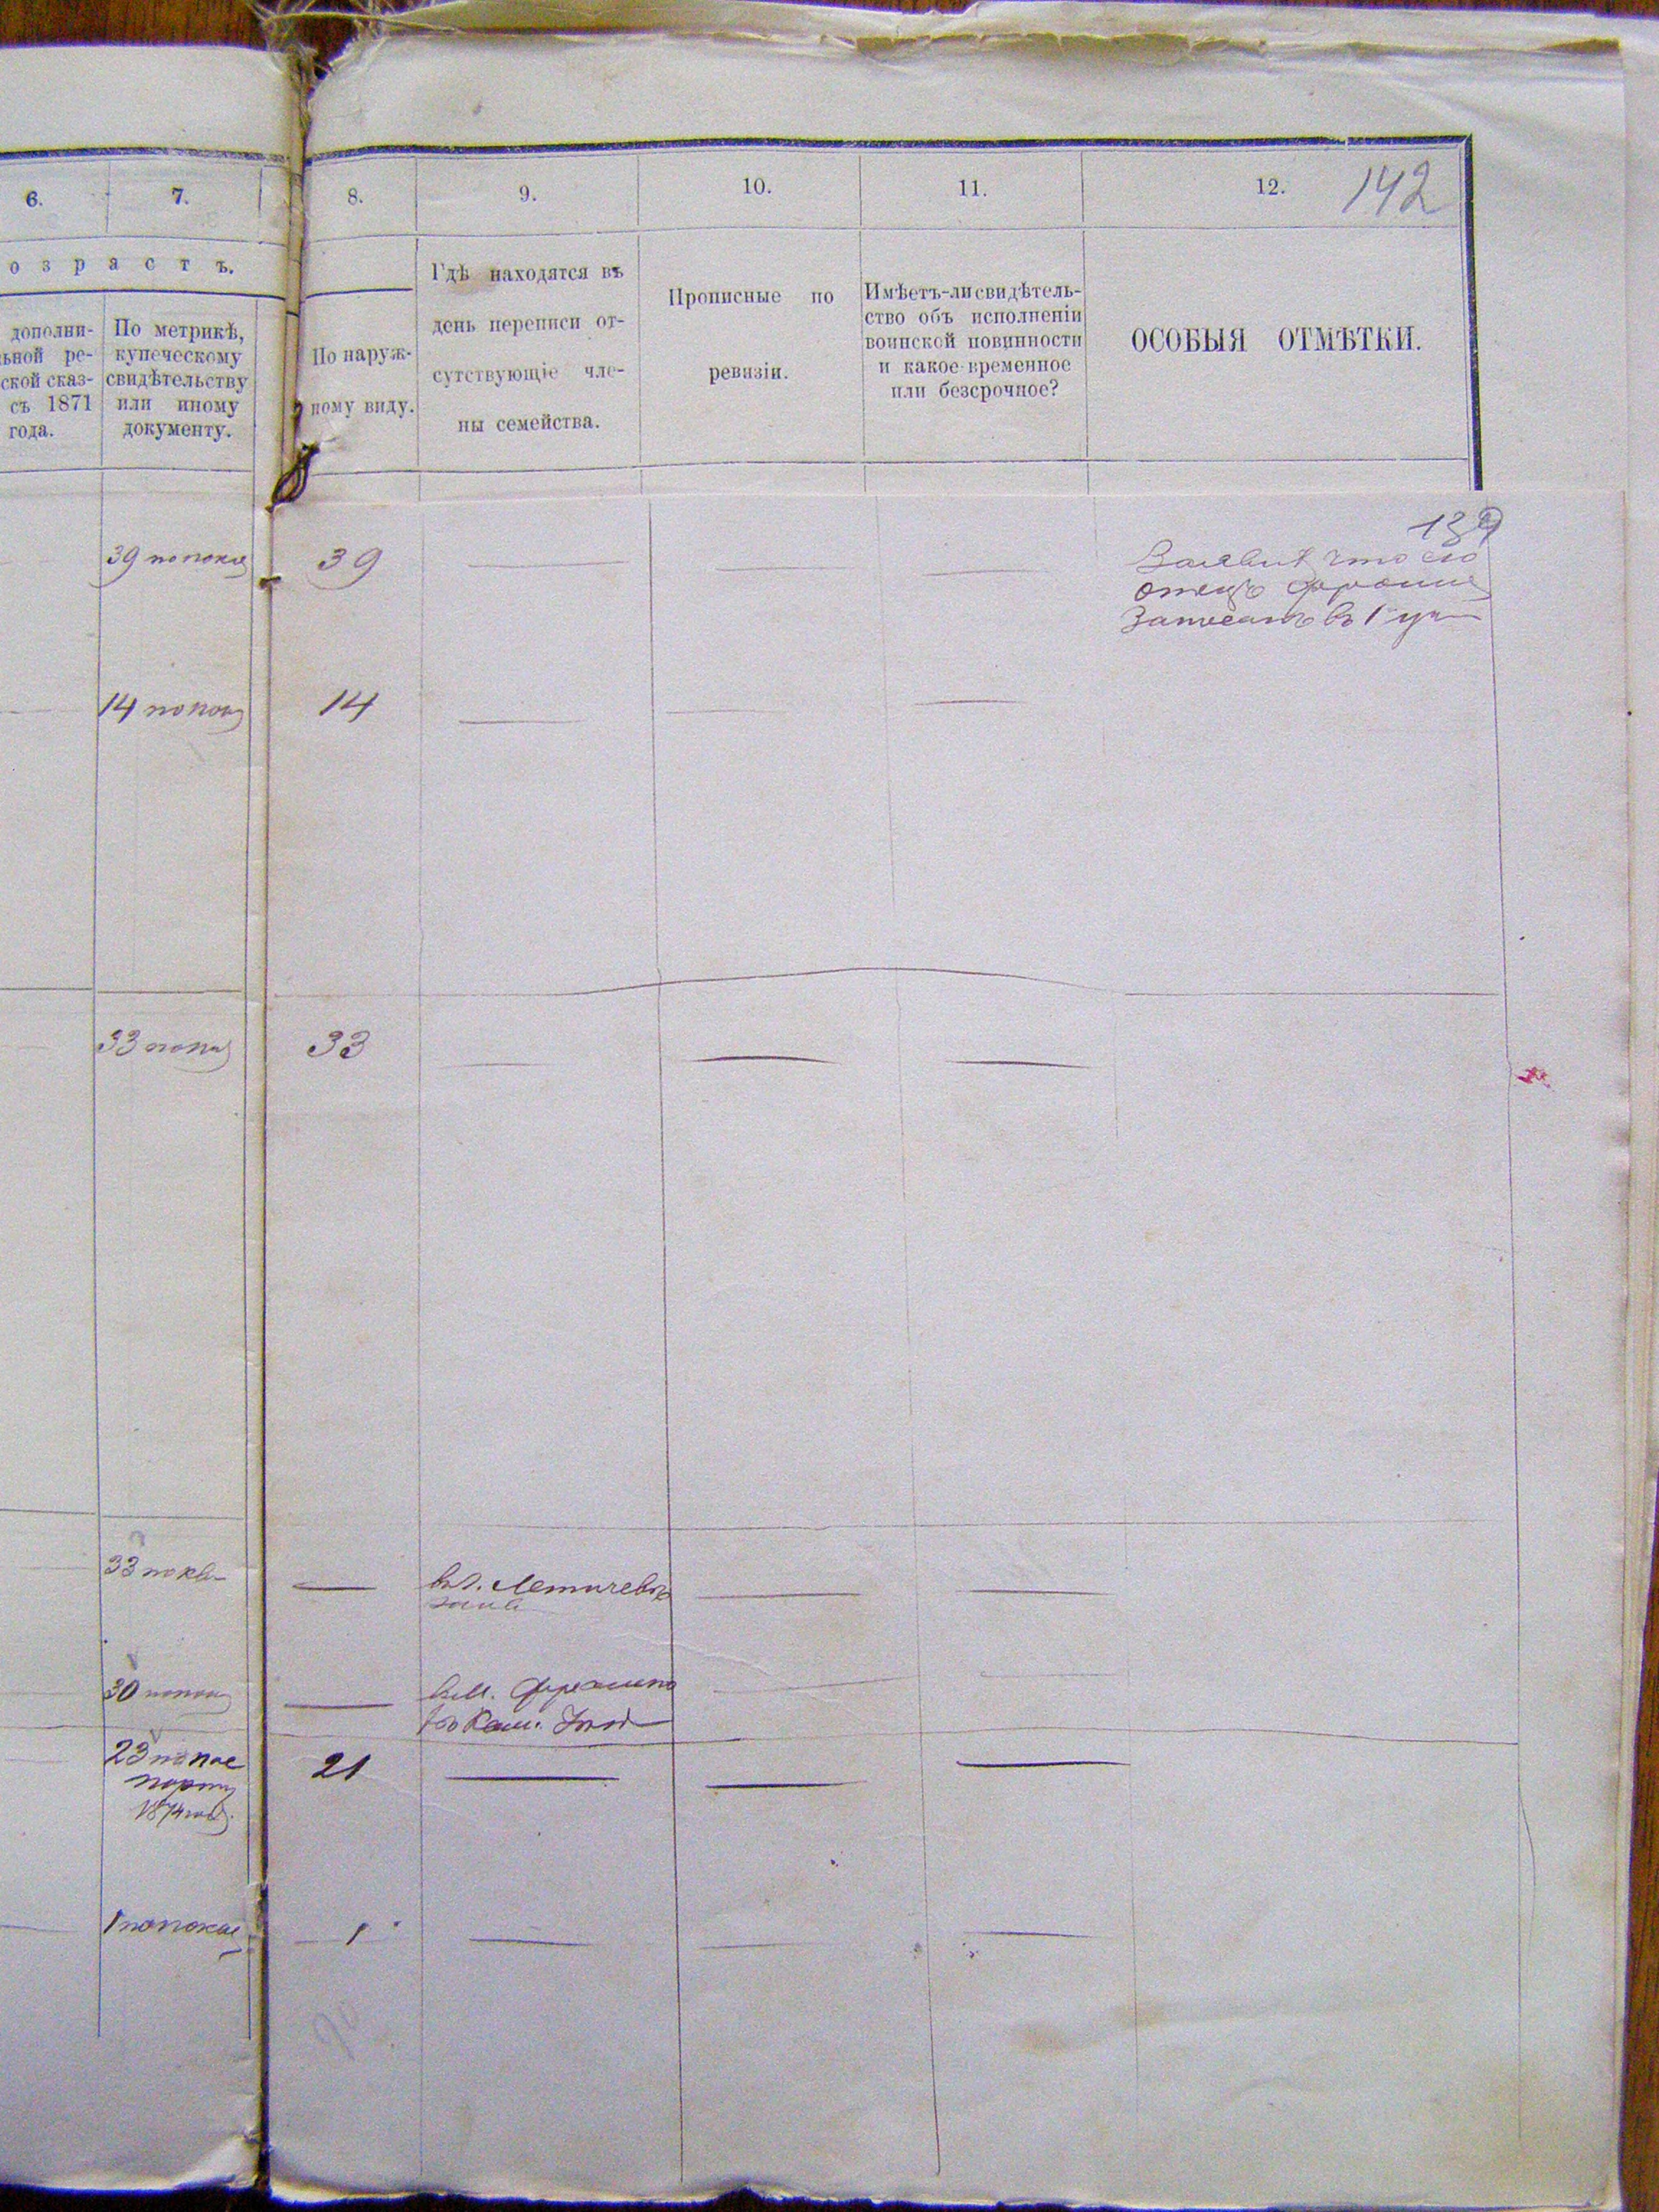 6.
7.
8.
9.
10.
11.
12.
142
о з р а с т ъ.
дополни-
ьной ре-
ской сказ-
съ 1871
года.
По метрикѣ,
купеческому
свидѣтельству
или иному
документу.
По наруж-
ному виду.
Гдѣ находятся въ
день переписи от-
сутствующіе чле-
ны семейства.
Прописные по
ревизіи.
Имѣетъ-ли свидѣтель-
ство объ исполненіи
воинской повинности
и какое-временное
или безсрочное?
ОСОБЫЯ ОТМѢТКИ.
139
39 по показ
39
что его
отецъ
Записанъ въ 1
14 по
14
33
33
33
Летичевъ
30
въ м.
23 по пас
порту
1874 год.
21
1 по показ
1